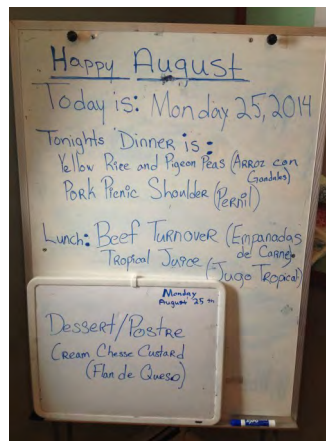 Happy August
Today is: Monday 25, 2014
Tonights Dinner is:
Yellow Rice and Pigeon Peas (Arroz can
Gandules)
Pork Picnic Shoulder (Pernil)
Lunch: Beef Turnover (Empanadas
de Carne).
Tropical Juice (Jugo Tropical)
Monday
August 25th
Dessert/Postre
Cream Chesse Custard
(Flan de Queso)